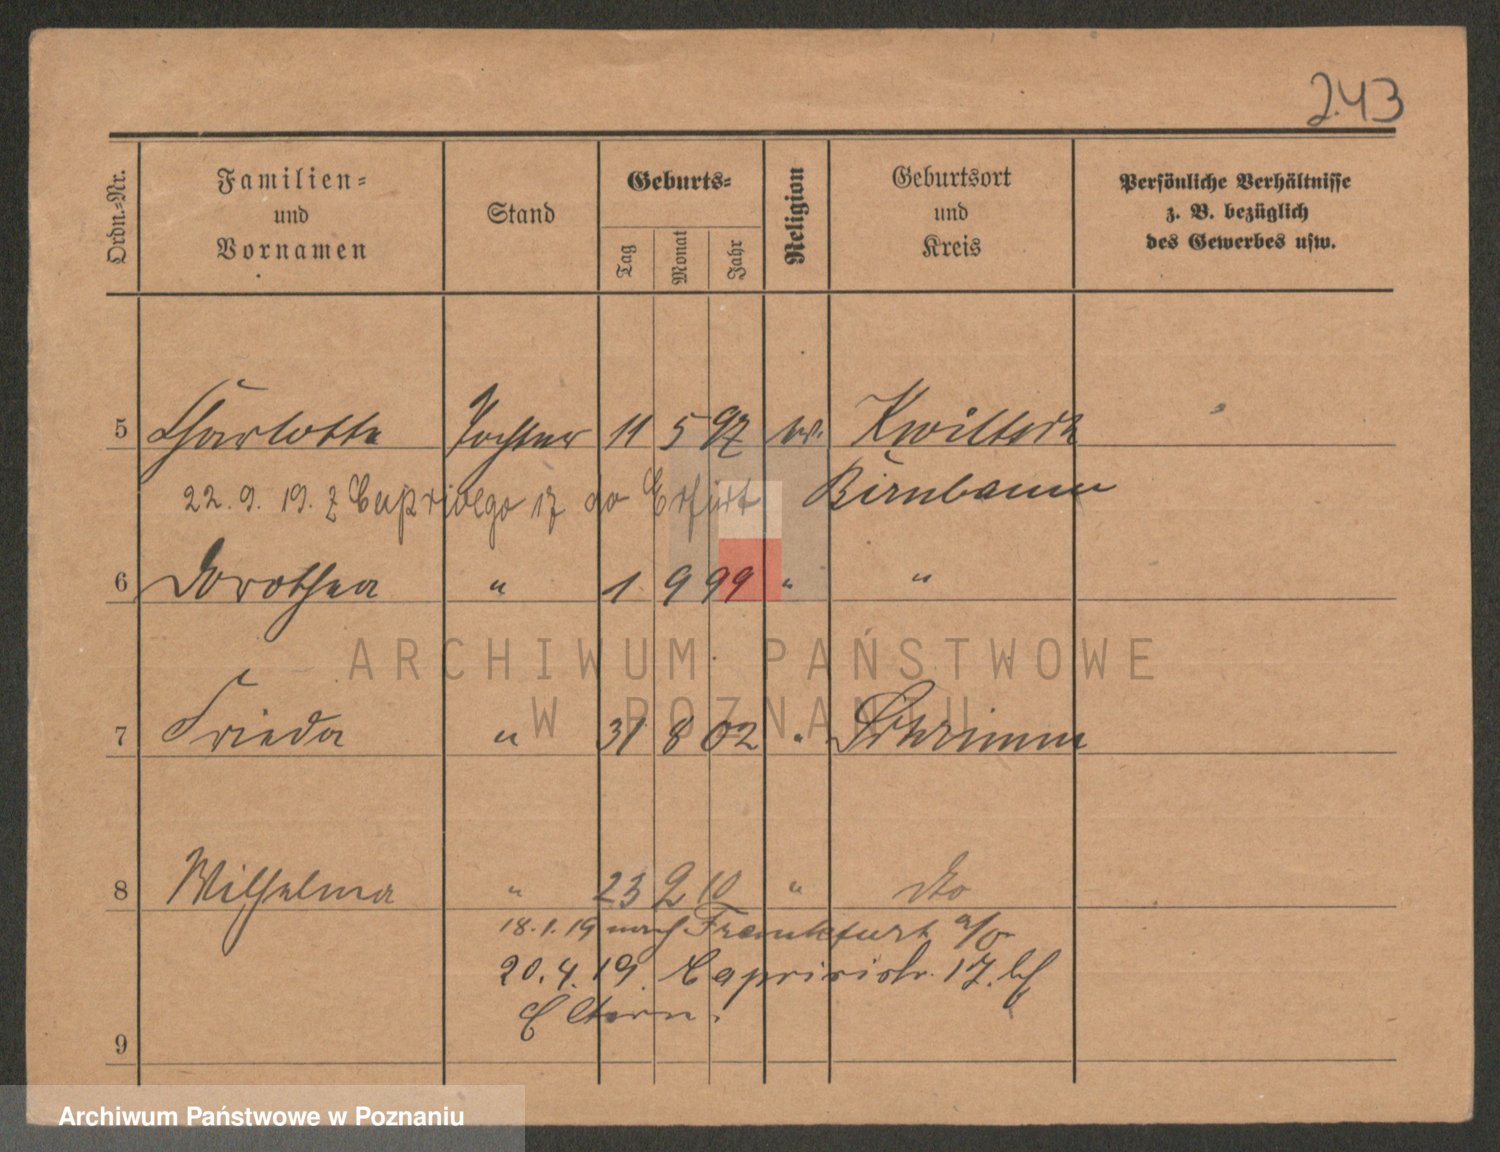 243
Ordn.-Nr.
Familien-
und
Vornamen
Stand
Geburts-
Tag
Monat
Jahr
Religion
Geburtsort
und
Kreis
Persönliche Verhältnisse
z. B. bezüglich
des Gewerbes usw.
5 Charlotte Tochter 11 5 97 ev. Kwiltsch
22. 9. 19. z Caprivego 17 do Erfurt Birnbaum
6 Dorothea " 1 9 99 " "
7 Frieda " 31 8 02 " Schrimm
8 Wilhelma " 23 2 10 " dto
18.1.19 nach Frankfurt a/O
20.4.19. Caprivistr. 17. bei
Eltern.
9
ARCHIWUM PAŃSTWOWE
W POZNANIU
Archiwum Państwowe w Poznaniu